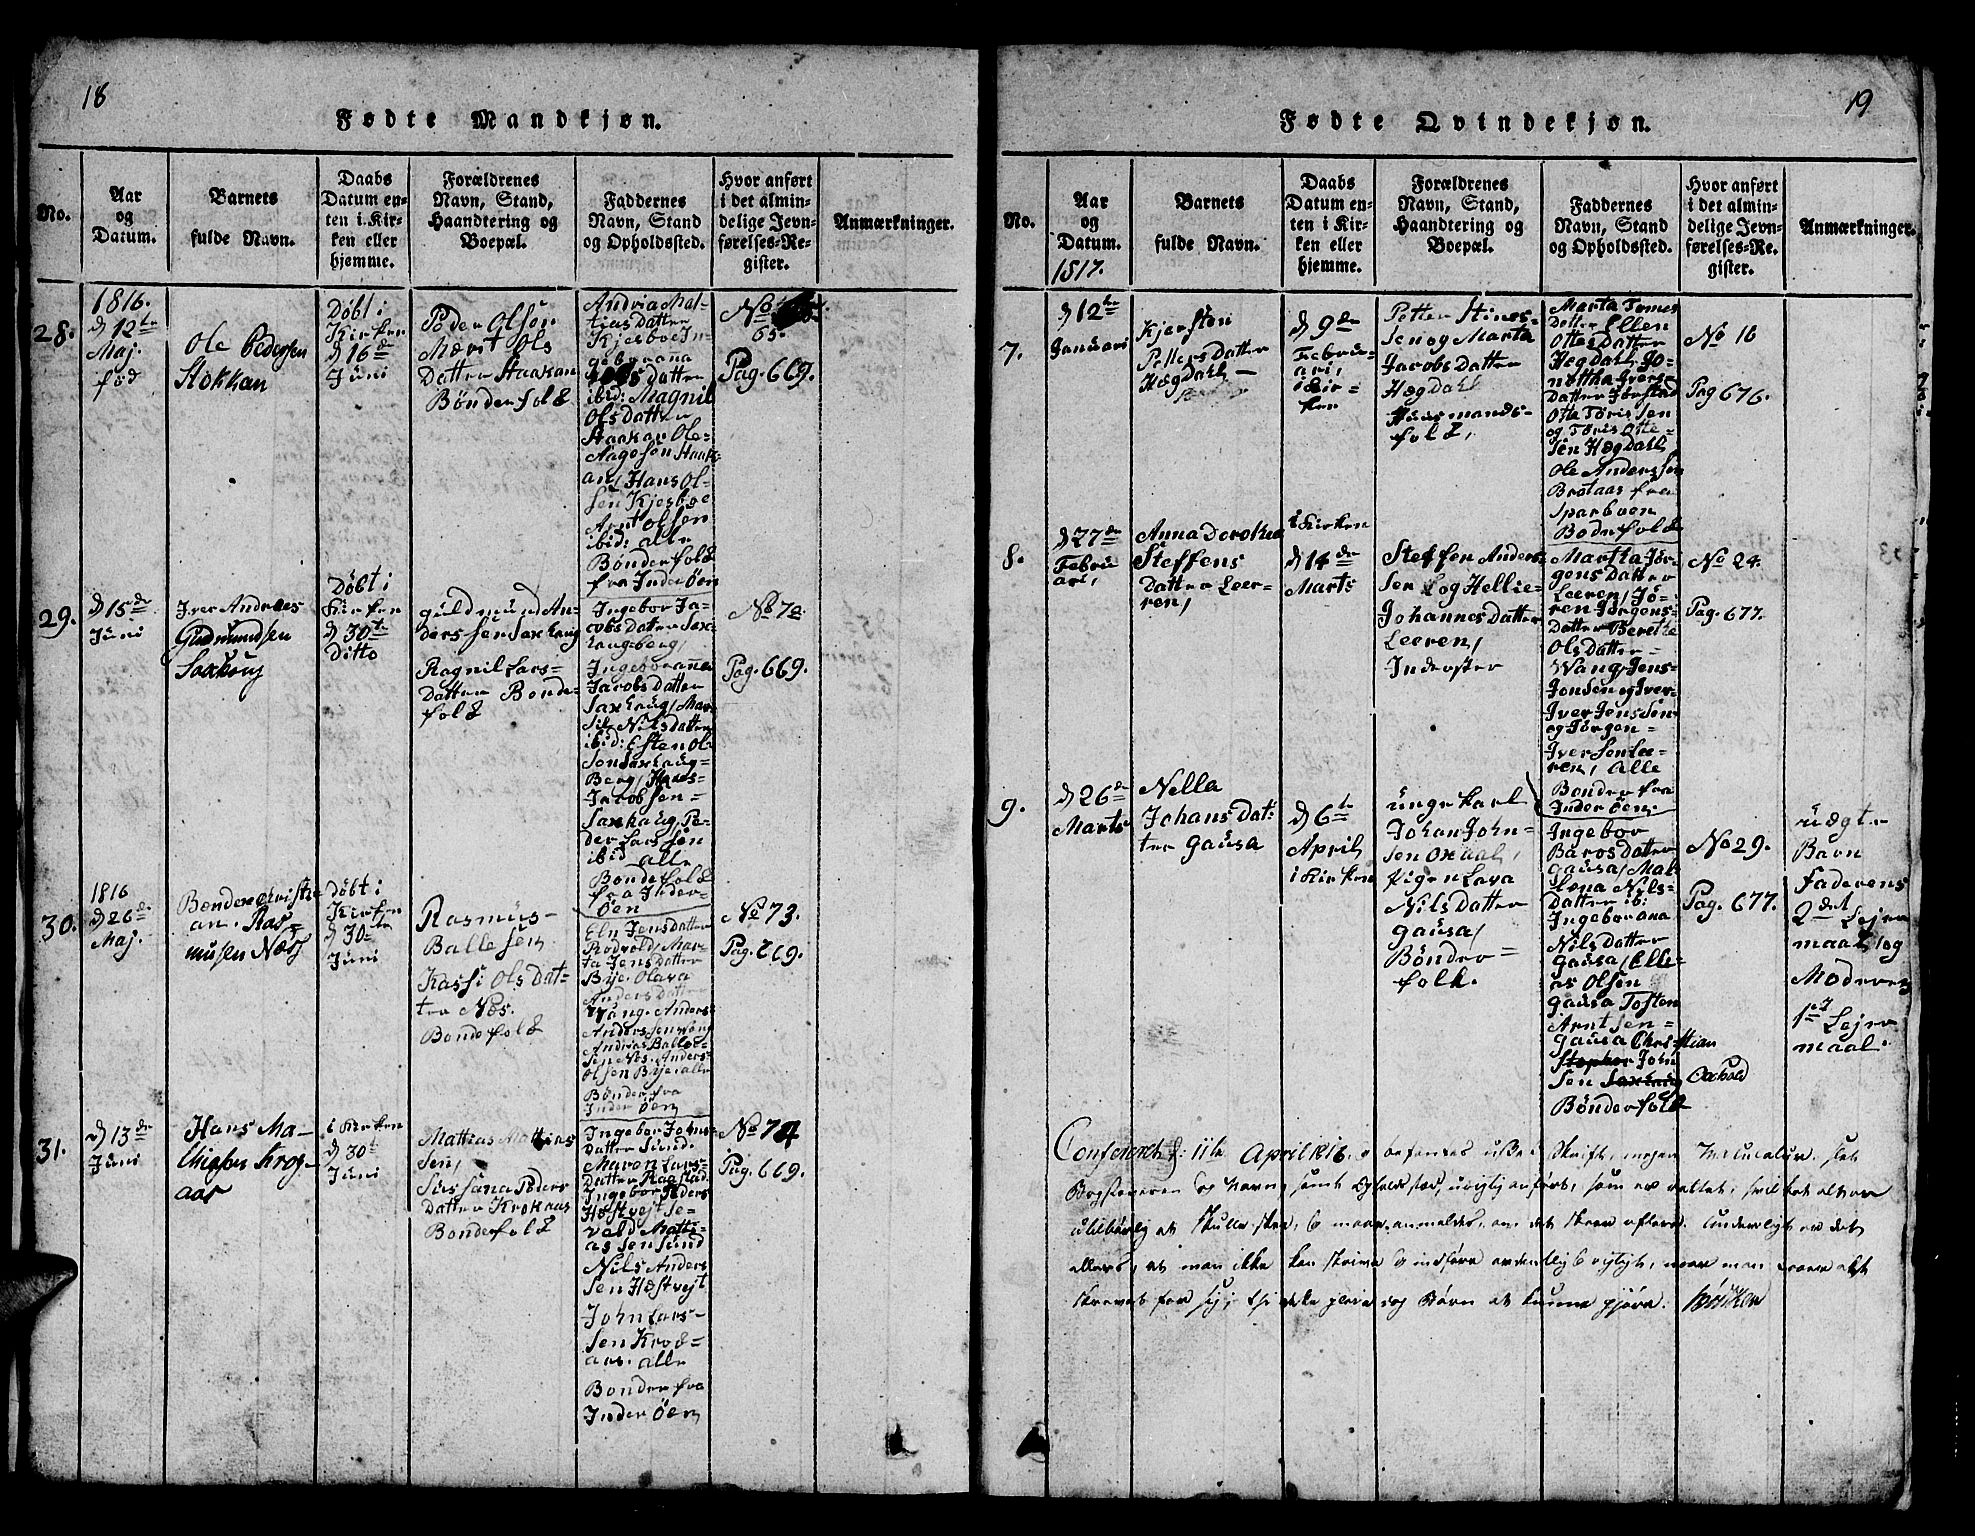 18
Fødte Mandkjøn.
No.
Aar
og
Datum.
Barnets
fulde Navn.
Daabs
Datum en-
ten i Kir-
ken eller
hjemme.
Forældrenes
Navn, Stand,
Haandtering og
Boepæl.
Faddernes
Navn, Stand
og Opholdssted.
Hvor anført
i det almin-
delige Jevn-
førelses-Re-
gister.
Anmærkninger.
28.
1816.
d 12te
Maj.
fød
Ole Pedersen
Stokkan
Døbt i
Kirken
d 16de
Juni
Peder Olsen
Marit Ols
Datter Staakan
Bønderfolk
Andria Mat-
tias Datter
Kjesboe In-
geborana
Datter
ibid: Magnil
Ols Datter
Staakan Ole-
Aagesen Staak-
an, Hans Ol-
sen Kjesboe
Arnt Olsen
ibid: alle
Bønderfolk
fra Inderøen
No
65.
Pag. 669.
29.
d 15de
Juni
Iver Andreas
Gudmundsen
Saxhoug
Døbt i
Kirken
d 30te
Ditto
Guldmund An-
derssen Saxhaug
Ragnil Lars-
Datter Bonde-
folk
Ingebor Ja-
cobs Datter Sax-
haugberg,
Ingeboranna
Jacobs Datter
Saxhaug, Mar-
Nils Datter
ibid: Esten Ol-
sen Saxhaug-
Berg, Hans-
Jacobsen-
Saxhaug, Pe-
der Larssen
ibid alle
Bondefolk
fra Inder-
øen
No 70
Pag. 669.
30.
1816
d 26de
Maj.
Bendene
an. Ras-
musen Næss
døbt i
Kirken
d 30te
Juni
Rasmus-
Ballesen
Kassi Ols Dat-
ter Næs.
Bondefolk
Eln Jens Datter
Rodvold, Mar-
ta Jens Datter
Bye. Olava
Anders Datter
Vang. Anders-
Anderssen Vang
Andrias Balle-
sen Nes. Anders-
Olsen Bye. alle
Bønder fra
Inderøen
No 73.
Pag. 669.
31.
d 13de
Juni
Hans Ma-
thiesen Krog-
aas
i Kirken
d 30te
Juni
Mathias Mattias
Sen,
Sussana Peders
Datter Krokaas
Bondefolk
Ingebor Johns-
Datter Sund.
Maren Lars-
Datter Raastad.
Ingebor Peders
Hestvejt Se-
vald Matti-
as Sen Sund
Nils Anders
Sen Hæstvejt
John Lars-
Sen Krog-
aas. alle
Bonder fra
Inderøen
No 74
Pag. 669.
19
Fødte Qvindekjøn.
No.
Aar
og
Datum.
1817.
Barnets
fulde Navn.
Daabs
Datum en-
ten i Kir-
ken eller
hjemme.
Forældrenes
Navn, Stand,
Haandtering og
Boepæl.
Faddernes
Navn, Stand
og Opholdssted.
Hvor anført
i det almin-
delige Jevn-
førelses-Re-
gister.
Anmærkninger.
7.
d 12te
Januari
Kjersten
Petters Datter
Hægdahl-
d 9de
Febru-
ari,
i Kir-
ken
Petter Stines-
Sen og Marta
Jacobs Datter
Hægdahl
Huusmands-
folk,
Marta Tomes
Datter Ellen
Ottes Datter
Hegdahl, Jo-
nettha Ivers-
Datter Jørstad
Otte Tøris Sen
og Tøris Otte-
Sen Hægdahl
Ole Anderssen
Brataas fra
Sparboen
Bøderfolk
No 16
Pag 676.
8.
d 27te
Febru
ari,
Anna Dorothea
Steffens
Datter Leer-
ren,
i Kirken
d 14de
Marts
Steffen Anders-
Sen og Hellie-
Johannes Datter
Leeren,
Inderster
Martha Jør-
gens Datter
Leeren, Jø-
ren Jørgens-
Datter Berethe
Ols Datter-
Wang, Jens-
Jonsen og Iver-
Iver Jenssen
og Jørgen-
Iversen Lee-
ren, alle
Bonder fra
Inderøen.
No 24.
Pag. 677.
9.
d 26de
Marts
Nella
Johans Dat-
ter Gausa
d 6te
April
i Kirken
unge karl
Johan John-
Sen Oxaal,
Pigen Lava
Nils Datter
Gausa,
Bønder-
folk.
Ingebor
Baros Datter
Gausa, Mal-
lena Nils-
Datter ib:
Ingeborana
Nils Datter
Gausa, Elle-
as Olsen
Gausa Tosten
Arntsen-
Gausa Christian
Stephen John
Sen Saxhaug Oxhold
Bønderfolk
No 29.
Pag. 677.
uægte
Barn
Faderens
2det Lejer
maal, og
Moderens
1ste Lejer
maal.
Confereret d: 11te April 1818.